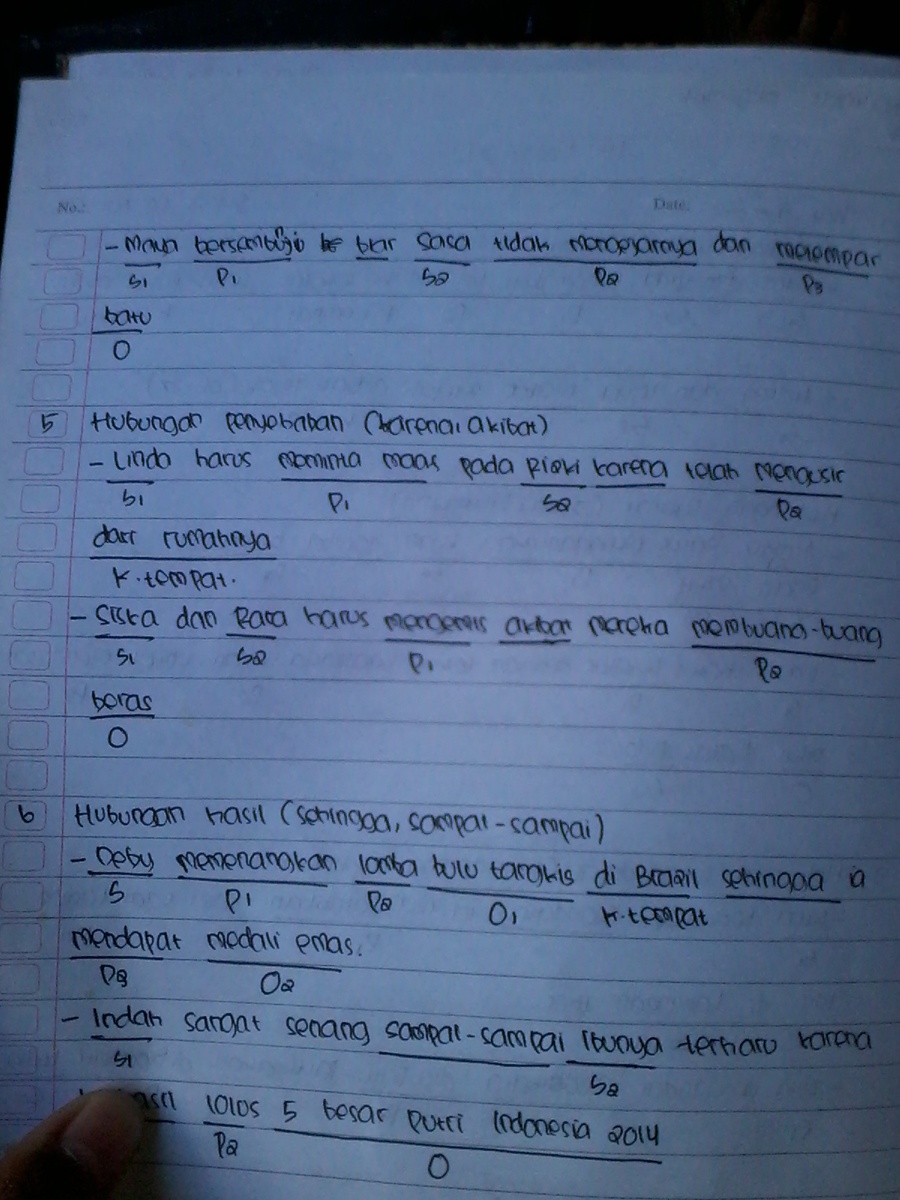 No.:
Date:
- Maya bersembunyi biar Sasa tidak mengejarnya dan melempar
S1 P1 S2 P2 P3
batu
O
5 Hubungan penyebaban (karena, akibat)
- Linda harus meminta maaf pada Rioki karena telah mengusir
S1 P1 S2 P2
dari rumahnya
K. tempat.
- Siska dan Rara harus mengemis akibat mereka membuang-buang
S1 S2 P1 P2
beras
O
6 Hubungan hasil (sehingga, sampai-sampai)
- Deby memenangkan lomba bulu tangkis di Brazil sehingga ia
S P1 P2 O1 K. tempat
mendapat medali emas.
P3 O2
- Indah sangat senang sampai-sampai ibunya terharu karena
S1 S2
lolos 5 besar Putri Indonesia 2014
P2 O